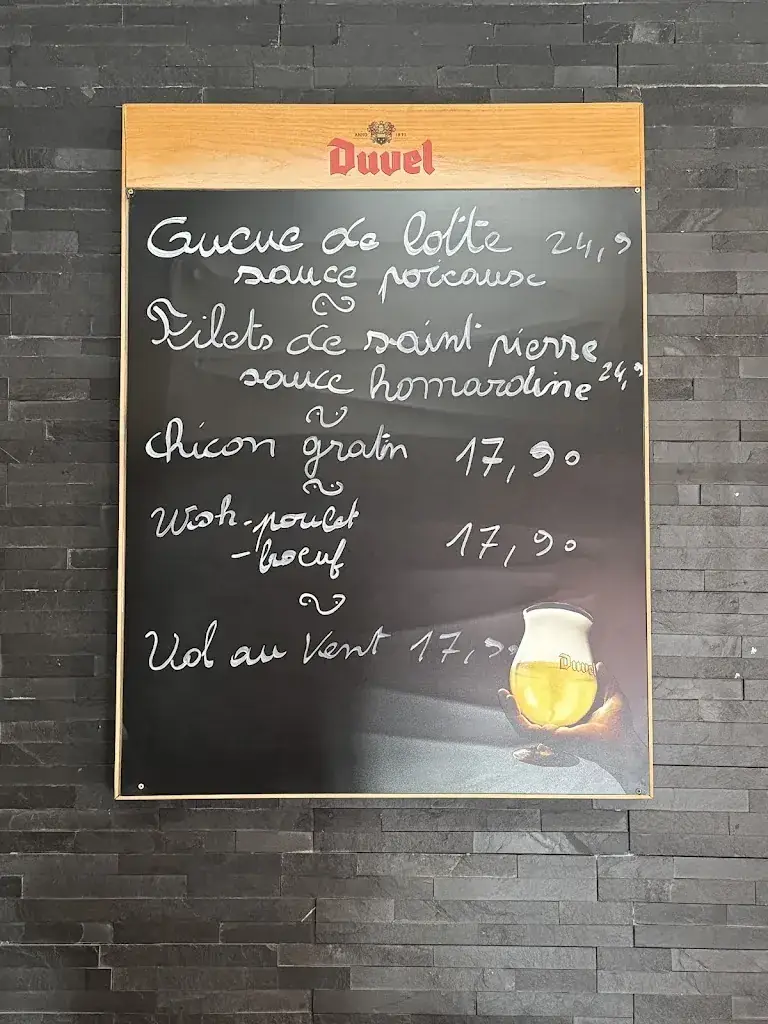 ANNO 1871
Duvel
Queue de lotte 24,9
sauce poivause
Filets de saint pierre
sauce homardine 24,9
Chicon gratin 17,90
Wok - poulet
- boeuf 17,90
Vol au Vent 17,90
Duvel